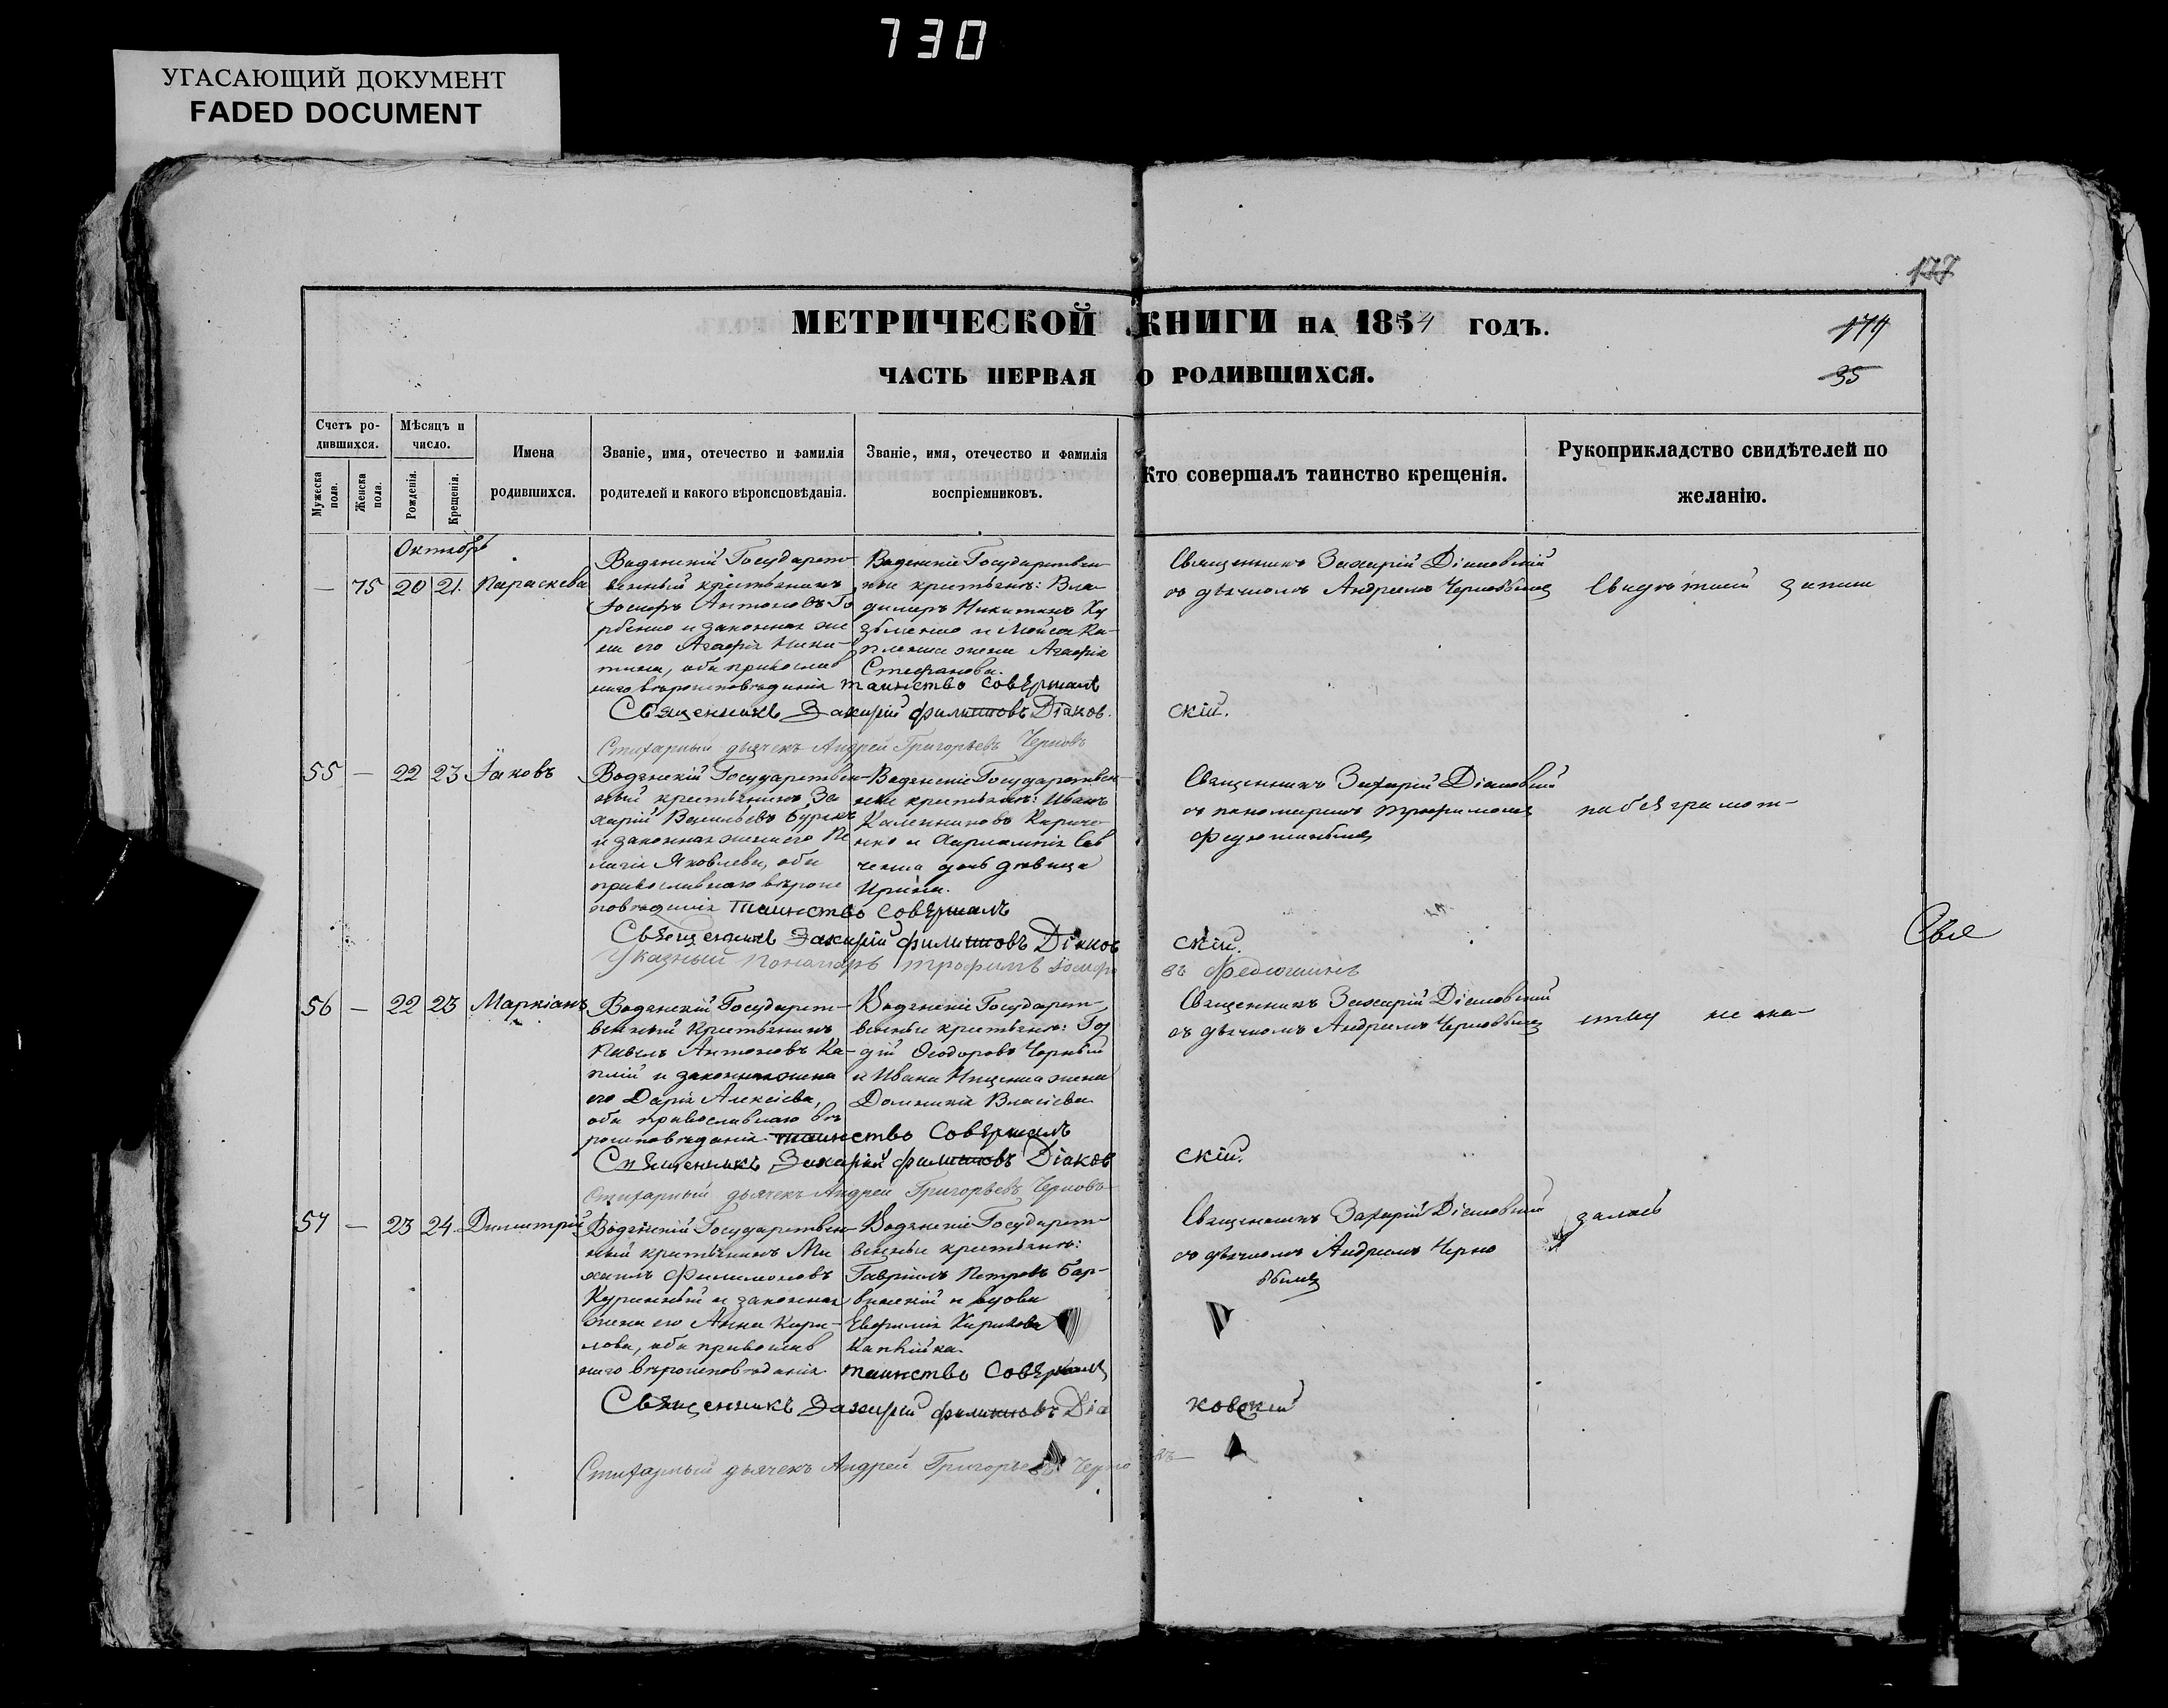 730
УГАСАЮЩИЙ ДОКУМЕНТ
FADED DOCUMENT
177
МЕТРИЧЕСКОЙ КНИГИ НА 1854 ГОДЪ.
174
ЧАСТЬ ПЕРВАЯ О РОДИВШИХСЯ.
35
Счетъ ро-
дившихся.
Мужеска пола.
Женска пола.
Мѣсяцъ и
число.
Рожденія.
Крещенія.
Имена
родившихся.
Званіе, имя, отечество и фамилія
родителей и какого вѣроисповѣданія.
Званіе, имя, отечество и фамилія
воспріемниковъ.
Кто совершалъ таинство крещенія.
Рукоприкладство свидѣтелей по
желанію.
Октябрь
— 75 20 21. Параскева
Водянскій Государст-
венный крестьянинъ
Іосифъ Антоновъ Го
рбенко и законная же
на его Агафія Ники-
тина, оба православ
наго вѣроисповѣданія
Водянскіе Государствен
ные крестьяне: Вла-
димиръ Никитинъ
и Моисея Ка-
жена Агафія
Стефанова.
Священникъ Захарій Діаковскій
съ дьячкомъ Андреемъ
Свидѣтелей запи
таинство совершалъ
Священникъ Захарій Филиповъ Діаков
скій.
Стихарный дьячекъ Андрей Григорьевъ Черновъ
55 — 22 23 Іаковъ
Водянскій Государствен-
ный крестьянинъ За
харій Васильевъ
и законная жена его Пе
лагія Яковлева, оба
православнаго вѣроис
повѣданія
Водянскіе Государствен
ные крестьяне: Иванъ
Калениковъ Кириче-
нко и
дочь дѣвица
Ирина.
Священникъ Захарій Діаковскій
съ пономаремъ Трофимомъ
на безграмот-
таинство совершалъ
Священникъ Захарій Филиповъ Діаков
скій.
Указный пономарь Трофимъ Іосифо
въ
Свя
56 — 22 23 Маркіанъ
Водянскій Государст-
венный крестьянинъ
Павелъ Антоновъ Ка-
и законная жена
его Дарія Алексіева,
оба православнаго вѣ
роисповѣданія.
Водянскіе Государст-
венные крестьяне: Гор
дій Феодоровъ Чорный
и Ивана Ищенка жена
Домникія Власіева
Священникъ Захарій Діаковскій
съ дьячкомъ Андреемъ
ству не ока-
таинство совершалъ
Священникъ Захарій Филиповъ Діаков
скій.
Стихарный дьячекъ Андрей Григорьевъ Черновъ
57 — 23 24. Димитрій
Водянскій Государствен
ный крестьянинъ Ми
хаилъ Филимоновъ
Куринный и законная
жена его Анна Кири-
лова, оба православ
наго вѣроисповѣданія
Водянскіе Государст-
венные крестьяне:
Гавріилъ Петровъ Бар-
и вдова
Евфимія Кирилова
Священникъ Захарій Діаковскій
съ дьячкомъ Андреемъ Черно
залось
таинство совершалъ
Священникъ Захарій Филиповъ Діа
ковскій
Стихарный дьячекъ Андрей Григорьевъ Черно
въ